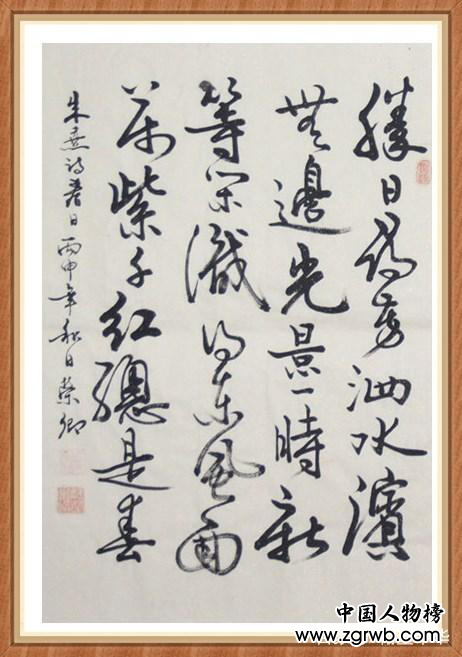 勝日尋芳泗水濱
無邊光景一時新
等閑識得東風面
萬紫千紅總是春
朱熹詩春日 丙申年秋日 榮卿
中国人物榜
www.zgrwb.com